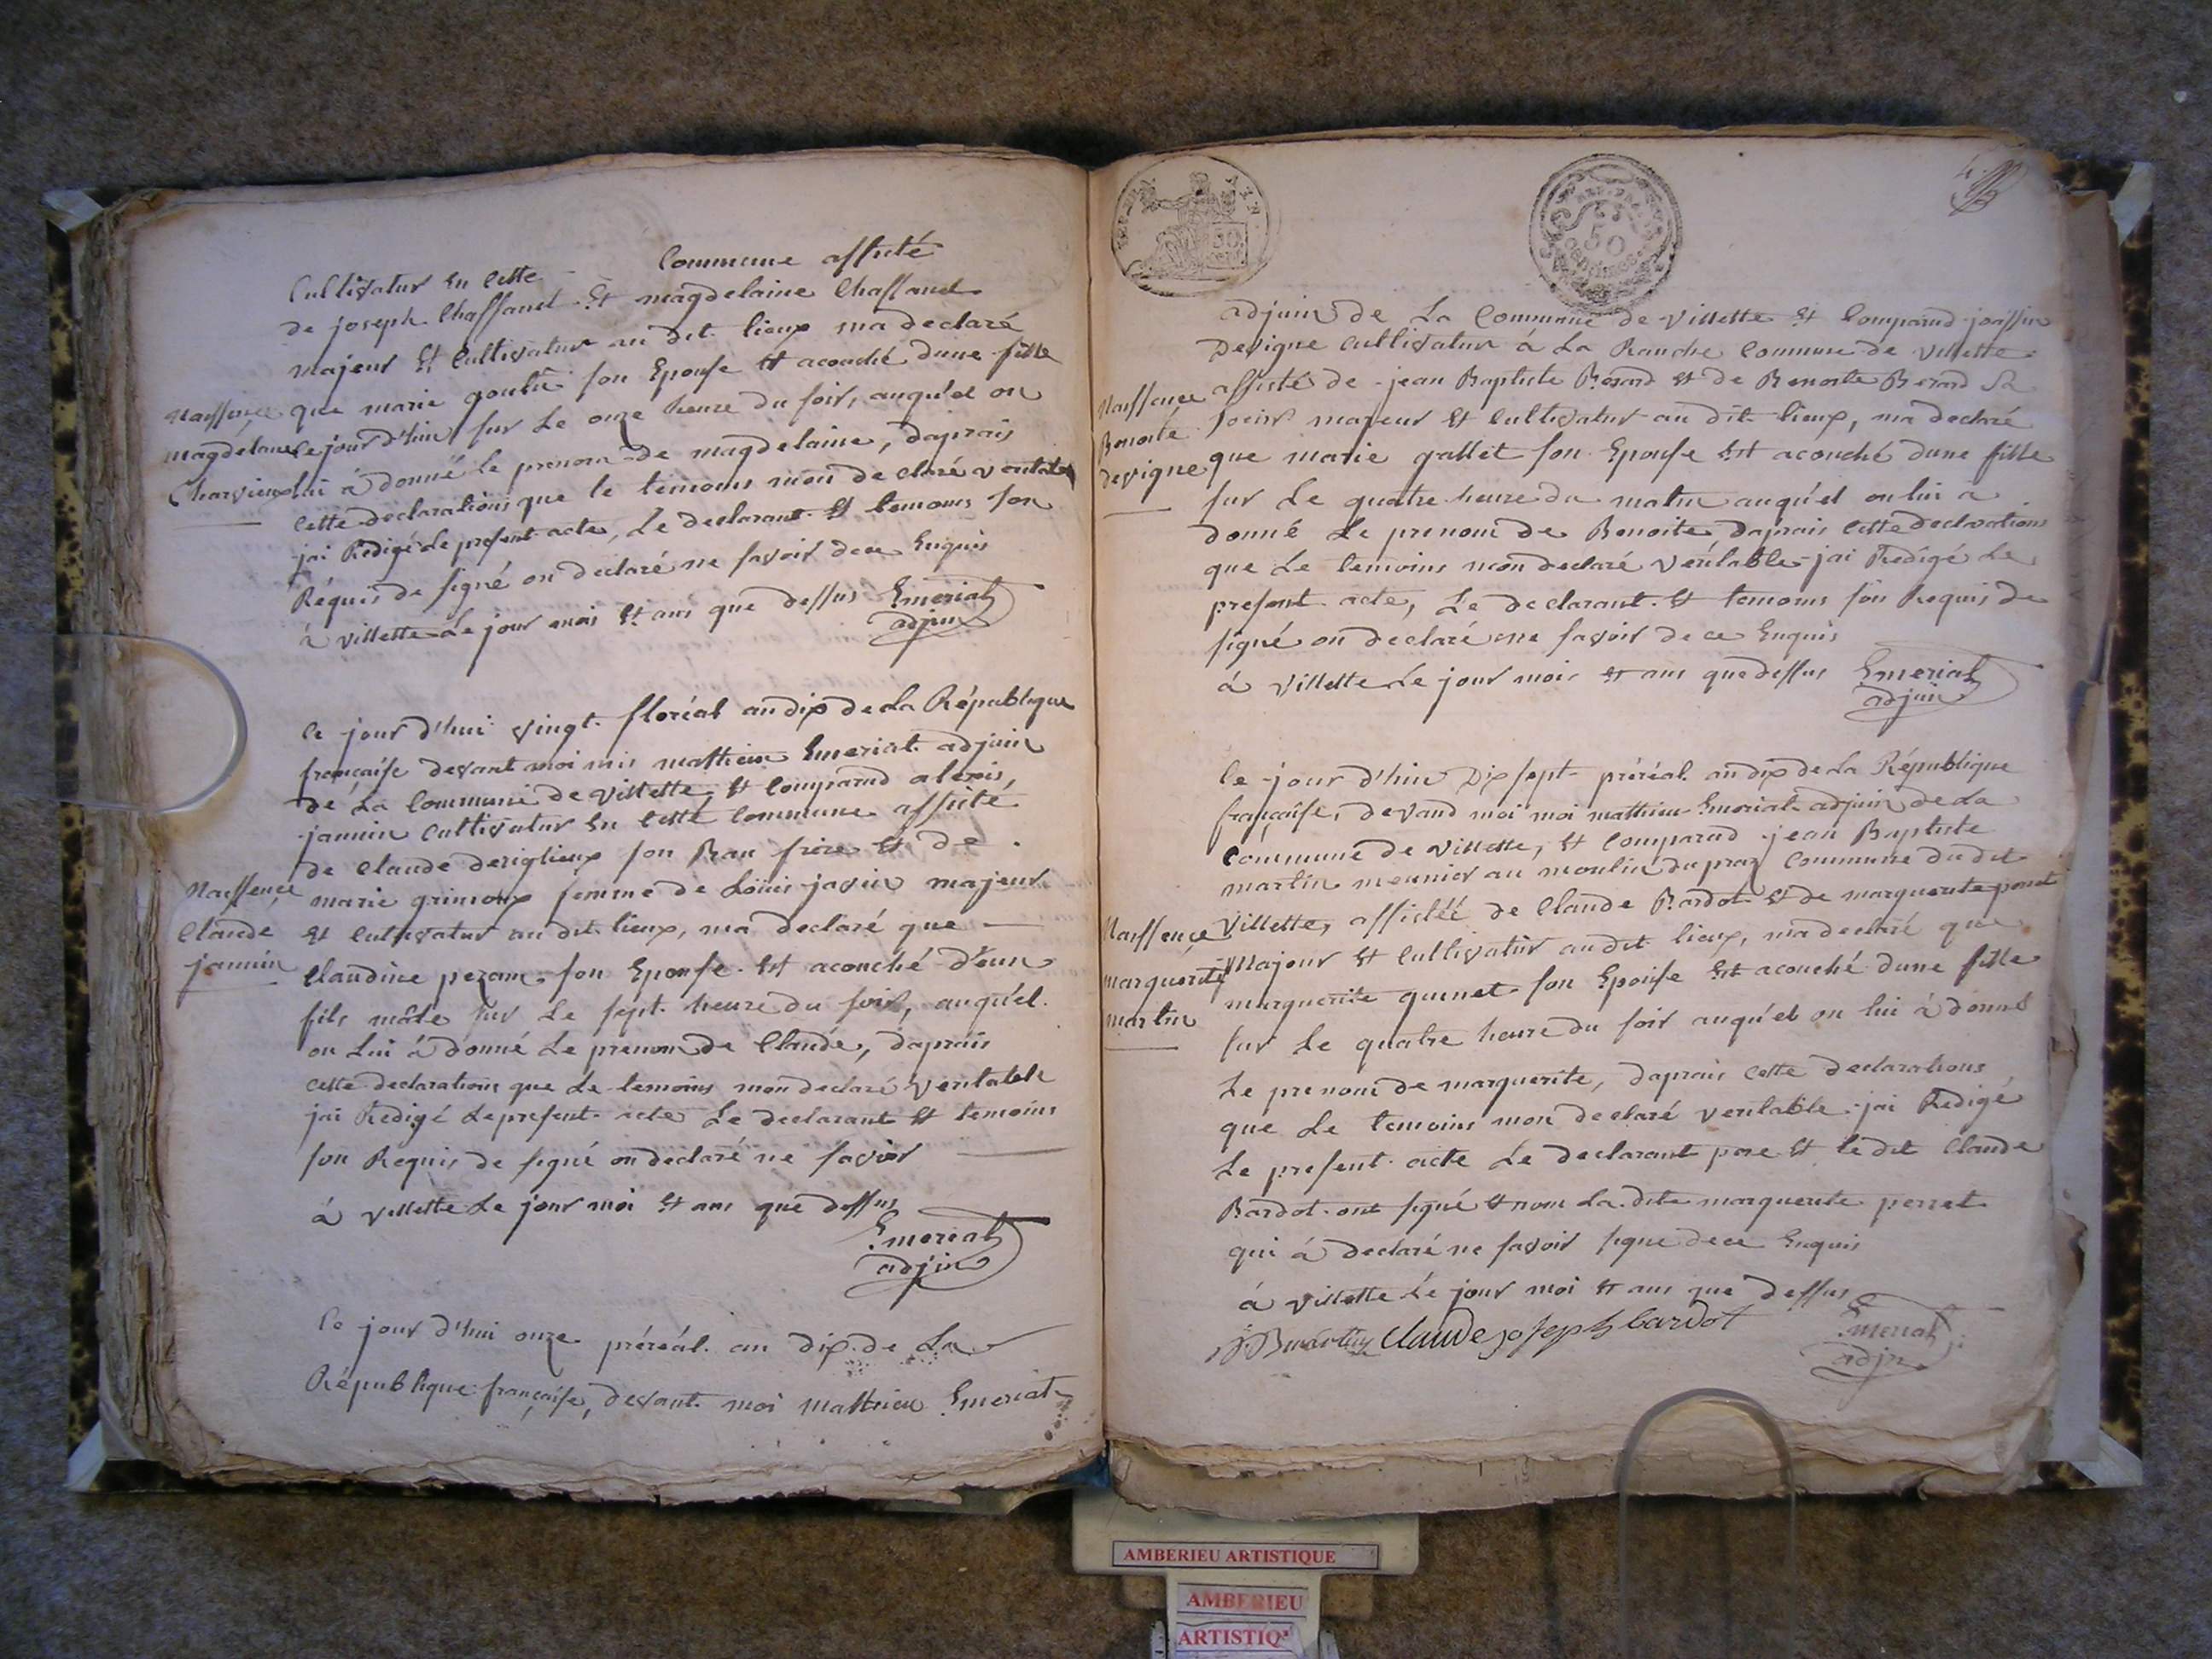 Commune assisté
Cultivatur en Cette
de joseph Chaffanet Et magdelaine Chaffanet
majeur Et Cultivatur au dit lieux ma declaré
que marie son Epouse Et acouché dune fille
Naissençe
magdelaine
Charvieux
Ce jour d'hui sur Le onze heure du soir, auqu'el on
lui à donné Le prenom de magdelaine, daprais
Cette declarations que le temoins mon declaré veritable
jai Redigé Le present acte, Le declarant Et temoins son
Réquis de signé on declaré ne savoir de ce Enquis
à villette Le jour mois Et ans que dessus Emeriat
adjin
Ce jour d'hui vingt floréal an dix de La République
française devant moi mis matthieu Emeriat adjuin
de La Commune de villette, Et Comparand alexis
jannin Cultivatur En Cette Commune assisté
de Claude deriglieux son Beau frère Et de
Naissençe
Claude
jannin
marie femme de Loüis javin majeur
Et Cultivatur au dit lieux, ma declaré que
Claudine son Epouse Et acouché d'eun
fils mâle sur Le sept heure du soir, auqu'el
on Lui à donné Le prenom de Claude, daprais
cette declarations que Le temoins mon declaré veritable
jai Redigé Le present acte Le declarant Et temoins
son Requis de signé on declaré ne savoir
à villette Le jour moi Et ans que dessus
Emeriat
adjin
Ce jour d'hui onze préréal an dix de La
République française, devant moi matthieu Emeriat
4
50
50
centimes
adjuin de La Commune de villette Et Comparand
Devigne Cultivatur à La Ranche Commune de villette
Naissençe
Benoite
devigne
assisté de jean Baptiste Bérard Et de Benoite Berard Sa
soeur majeur Et Cultivatur au dit lieux, ma declaré
que marie gallet son Epouse Est acouché dune fille
sur Le quatre heure du matin auqu'el on lui a
donné Le prenom de Benoite daprais Cette declarations
que Le temoins mon declaré veritable jai Redigé Le
present acte, Le declarant Et temoins son Requis de
signé on declaré ne savoir de ce Enquis
à villette Le jour mois et ans que dessus Emeriat
adjuin
Ce jour d'hui Dix sept préréal an dix de La République
française, devand moi moi matthieu Emeriat adjuin de La
Commune de villette, Et Comparand jean Baptiste
martin meunier au moulin du praz Commune du dit
Naissençe
marguerite
martin
Villette, assistéé de Claude Bardot Et de marguerite perret
Majeur Et Cultivatur au dit lieux, ma declaré que
marguerite son Epouse Est acouché dune fille
sur Le quatre heure du soir auqu'el on lui à donné
Le prenom de marguerite, daprais Cette declarations
que Le temoins mon declaré veritable jai Redigé
Le present acte Le declarant pere Et le dit Claude
Bardot ont signé Et nom La dite marguerite perret
qui à declaré ne savoir signe de ce Enquis
à villette Le jour moi Et ans que dessus
JB martin Claude joseph bardot
Emeriat
adjn
AMBERIEU ARTISTIQUE
AMBERIEU
ARTISTIQ